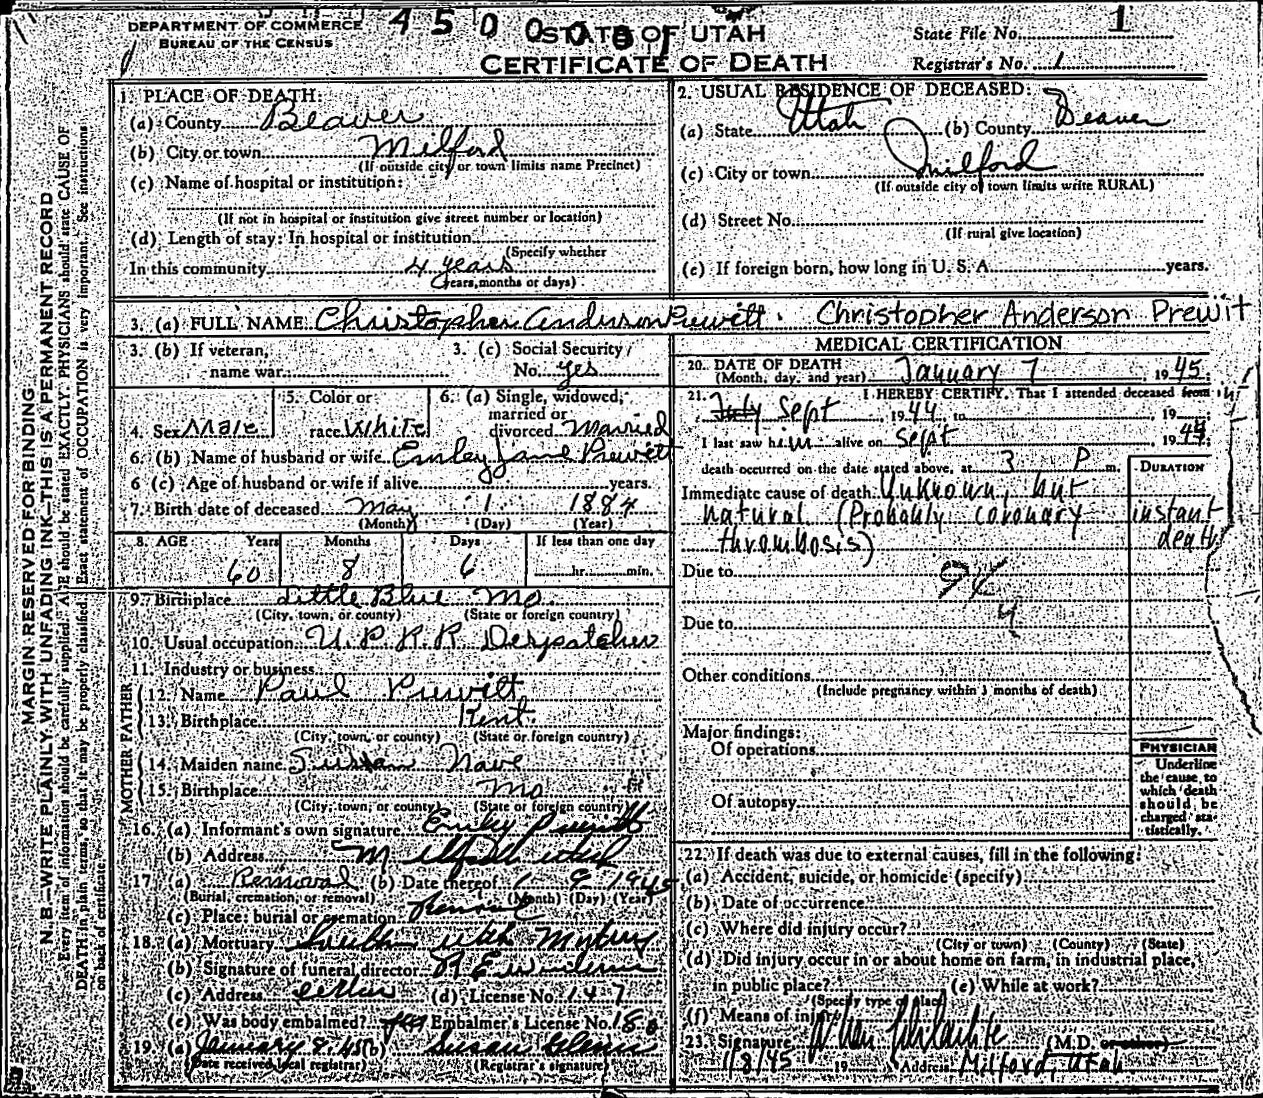 DEPARTMENT OF COMMERCE
BUREAU OF THE CENSUS
4 5 0 0 0 0 1
STATE OF UTAH
CERTIFICATE OF DEATH
State File No. 1
Registrar's No. 1
MARGIN RESERVED FOR BINDING
N. B.—WRITE PLAINLY, WITH UNFADING INK—THIS IS A PERMANENT RECORD
Every item of information should be carefully supplied. AGE should be stated EXACTLY. PHYSICIANS should state CAUSE OF
DEATH in plain terms, so that it may be properly classified. Exact statement of OCCUPATION is very important. See instructions
on back of certificate.
1. PLACE OF DEATH:
(a) County Beaver
(b) City or town Milford
(If outside city or town limits name Precinct)
(c) Name of hospital or institution:
(If not in hospital or institution give street number or location)
(d) Length of stay: In hospital or institution
(Specify whether
In this community 4 years
years, months or days)
2. USUAL RESIDENCE OF DECEASED:
(a) State Utah (b) County Beaver
(c) City or town Milford
(If outside city of town limits write RURAL)
(d) Street No.
(If rural give location)
(e) If foreign born, how long in U. S. A. years.
3. (a) FULL NAME Christopher Anderson Prewitt. Christopher Anderson Prewit
3. (b) If veteran,
name war
3. (c) Social Security
No. yes
4. Sex Male
5. Color or
race White
6. (a) Single, widowed,
married or
divorced Married
6. (b) Name of husband or wife Emley Jane Prewitt
6 (c) Age of husband or wife if alive years.
7. Birth date of deceased May 1 1884
(Month) (Day) (Year)
8. AGE Years Months Days If less than one day
60 8 6 hr. min.
9. Birthplace Little Blue Mo.
(City, town, or county) (State or foreign country)
10. Usual occupation U.P.R.R Derpatcher
11. Industry or business
FATHER
12. Name Paul Prewitt
13. Birthplace Kent.
(City, town, or county) (State or foreign country)
MOTHER
14. Maiden name Susan Nave
15. Birthplace Mo
(City, town, or county) (State or foreign country)
16. (a) Informant's own signature Emley Prewitt
(b) Address Milford Utah
17. (a) Removal (b) Date thereof 1 9 1945
(Burial, cremation, or removal) (Month) (Day) (Year)
(c) Place: burial or cremation
18. (a) Mortuary South Utah Mortuary
(b) Signature of funeral director R E
(c) Address (d) License No. 147
(e) Was body embalmed? yes Embalmer's License No. 180
19. (a) January 8, 45 (b) Susan Glenn
(Date received local registrar) (Registrar's signature)
MEDICAL CERTIFICATION
20. DATE OF DEATH
(Month, day, and year) January 7, 1945.
21. I HEREBY CERTIFY, That I attended deceased from
July Sept, 1944, to, 19
I last saw him alive on Sept, 1944;
death occurred on the date stated above, at 3 P m.
DURATION
Immediate cause of death Unknown, but
natural (Probably coronary
thrombosis)
instant
death
Due to
Due to
Other conditions
(Include pregnancy within 3 months of death)
Major findings:
Of operations
Of autopsy
PHYSICIAN
Underline
the cause to
which death
should be
charged sta-
tistically.
22. If death was due to external causes, fill in the following:
(a) Accident, suicide, or homicide (specify)
(b) Date of occurrence
(c) Where did injury occur?
(City or town) (County) (State)
(d) Did injury occur in or about home on farm, in industrial place,
in public place? (e) While at work?
(Specify type of place)
(f) Means of injury
23. Signature (M.D. or other)
1/8/45 19 Address Milford, Utah